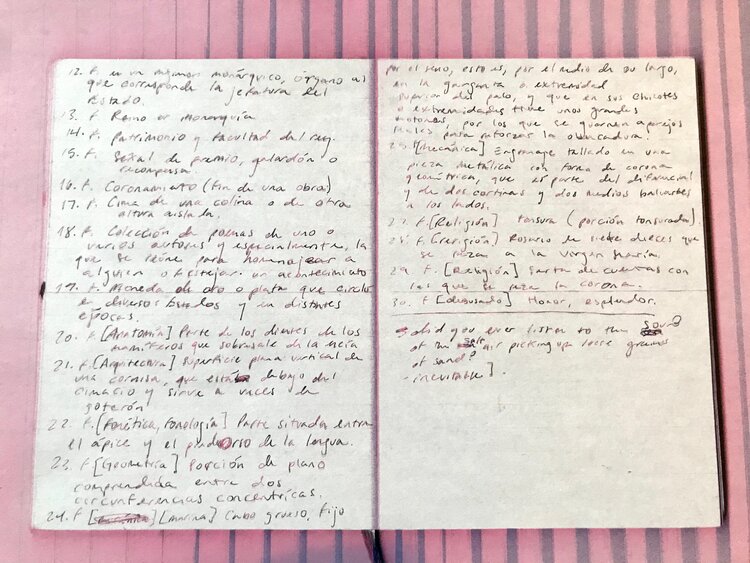 12. f. en un régimen monárquico, órgano al
que corresponde la jefatura del
Estado.
13. f Reino or monarquía
14. f. Patrimonio y facultad del rey.
15. f. Señal de premio, galardón o
recompensa
16. f. Coronamiento (fin de una obra)
17. f. Cima de una colina o de otra
altura aislada.
18. f. Colección de poemas de uno o
varios autores y especialmente, la
que se reúne para homenajear a
alguien o festejar un acontecimiento
19. f. Moneda de oro o plata que circuló
en diversos Estados y en distintas
épocas.
20. f [Anatomía] Parte de los dientes de los
mamíferos que sobresale de la encía
21. f. [Arquitectura] Superficie plana vertical de
una cornisa, que está debajo del
cimacio y sirve a veces de
goterón
22. f. [Fonética, fonología] Parte situada entre
el ápice y el predorso de la lengua.
23. f [Geometría] Porción de plano
comprendida entre dos
circunferencias concéntricas.
24. f [Marina] Cabo grueso, fijo
por el seno, esto es, por el medio de su largo,
en la garganta o extremidad
superior del palo, y que en sus chicotes
o extremidades tiene unos grandes
motones, por los que se guarnen aparejos
reales para reforzar la obencadura.
[Mecánica] Engranaje tallado en una
pieza metálica con forma de corona
geométrica, que es parte del diferencial
y de dos cortinas y dos medios baluartes
a los lados.
27. f. [Religión] Tonsura (porción tonsurada).
28. f [religión] Rosario de siete dieces que
se reza a la virgen María.
29. f. [Religión] Sarta de cuentas con
las que se reza la corona.
30. f [desusado] Honor, esplendor.
did you ever listen to the sound
of the salt air picking up loose grains
of sand?
- inevitable].